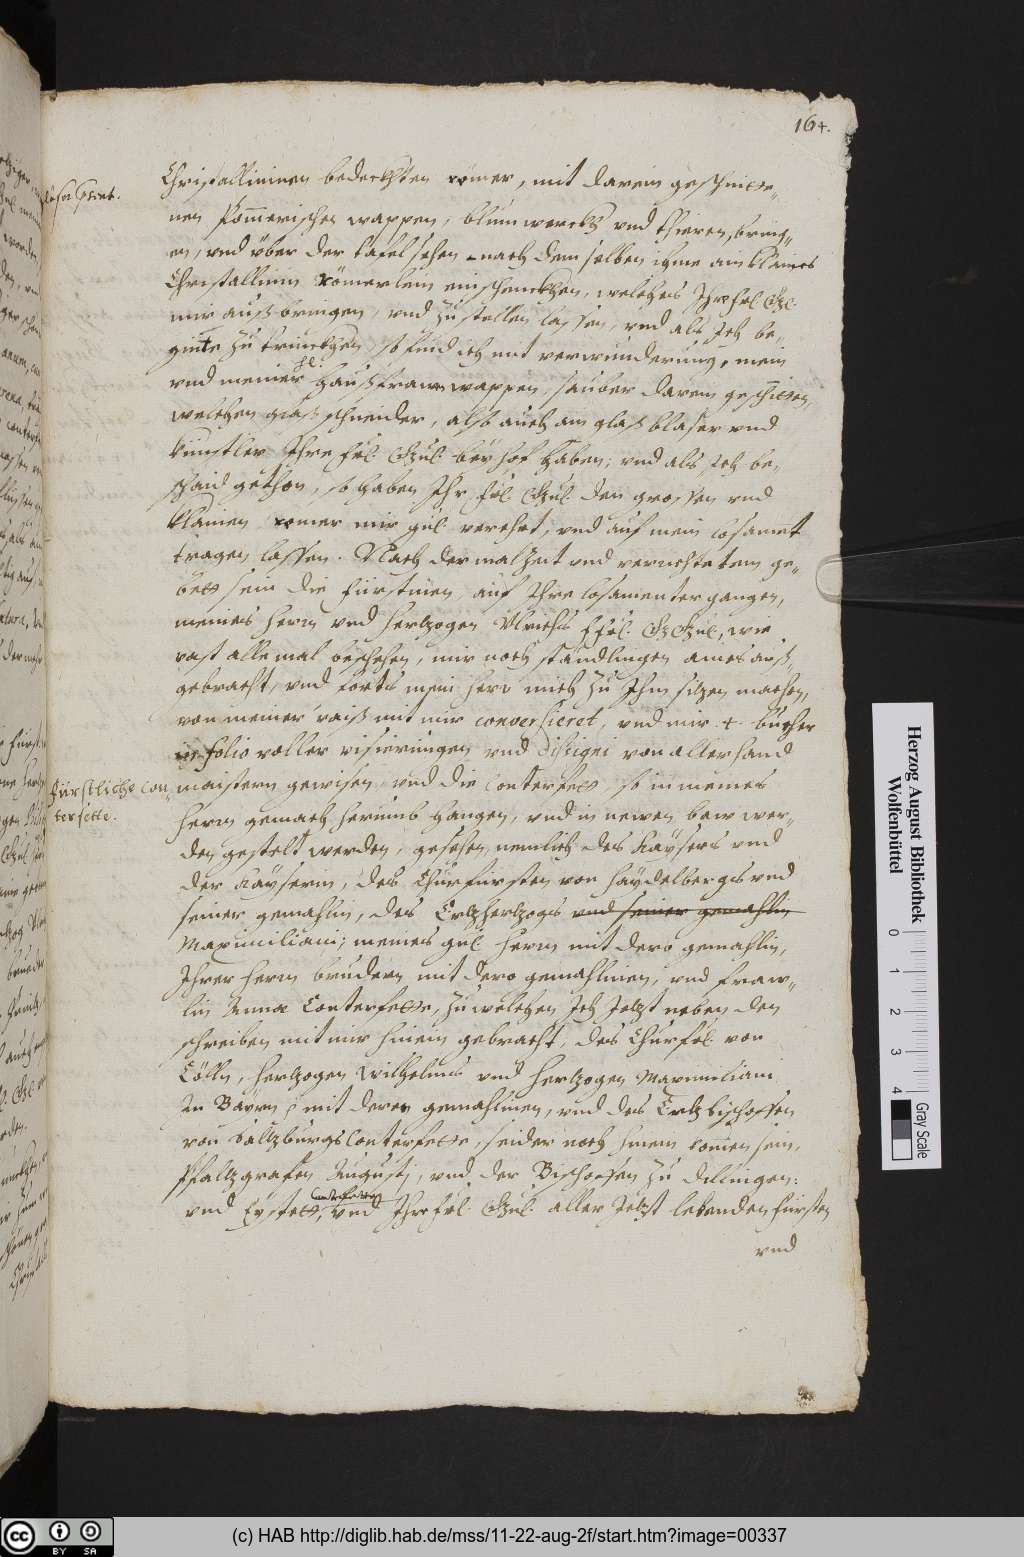 164.
Christallininen bedeckhten römer, mit darein geschnitte-
nen Pommerischen wappen, blumwerckh vnd thieren, bring-
en, vnd über der tafel sehen nach demselben ihme am klaines
Christallinin römerlein einschenckhen, welches Ihr frl: Gl:
mir auß bringen, vnd zustellen lassen, vnd als Ich be-
ginte zu trinckhen so find ich mit verwunderung, mein
vnd meiner hl: haußfrawn wappen, sauber darein geschnitten,
welchen glaßschneider, alß auch am glaß blaser vnd
künstler Ihre frl: Gnl: bey hof haben; vnd als Ich be-
schaid gethon, so haben Ihr frl: Gnl: den grossen vnd
klainen romer mir gnl: verehrt, vnd auf mein losament
tragen lassen. Nach der malzeit vnd verrichtetem ge-
bett sein die Fürstinen auf Ihre losamenter gangen,
meines herrn vnd hertzogen Vlrichs frl: Gl: Gnl:, wie
vast alle mal beschehen, mir noch ständlingen aines auß-
gebracht, vnd forts mein herr mich zu Ihm sitzen machen,
von meiner raiß mit mir conversieret, vnd mir 4 bücher
in folio voller visierungen vnd dissigni von allerhand
Fürstliche Con-
terfette.
maistern gewisen, vnd die Conterfett, so in meines
herrn gemach herumb hangen, vnd in newen baw wer-
den gestelt werden, gesehen, nemlich des Kaÿsers vnd
der Kaÿserin, des Churfursten von Haydelbergs vnd
seiner gemahlin, des Ertzhertzogs vnd seiner gemahlin
Maximiliani; meines gnl: herrn mit dero gemahlin,
Ihrer herrn brudern mit dero gemahlinen, vnd Fraw-
lin Annæ Conterfette, zu welchen Ich Jetzt neben den
schreiben mit mir hinein gebracht, des Churfl: von
Cölln, hertzogen Wilhelms vnd hertzogen Maximiliani
In Bayrn mit deren gemahlinen, vnd des Ertzbischoffen
von Saltzburgs Conterfette, seider noch hinein komen sein,
Pfaltzgrafen Augusti, vnd der Bischoffen zu Dillingen:
vnd Eystett, Conterfetten vnd Ihr frl: Gnl: aller Jetzt lebenden Fürsten
vnd
Herzog August Bibliothek
Wolfenbüttel
0 1 2 3 4
Gray Scale
(c) HAB http://diglib.hab.de/mss/11-22-aug-2f/start.htm?image=00337
CC BY SA